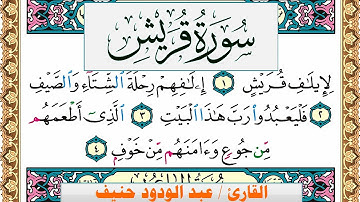 سورة قريش
لِإِيلَٰفِ قُرَيْشٍ ١ إِۦلَٰفِهِمْ رِحْلَةَ ٱلشِّتَآءِ وَٱلصَّيْفِ
٢ فَلْيَعْبُدُوا۟ رَبَّ هَٰذَا ٱلْبَيْتِ ٣ ٱلَّذِىٓ أَطْعَمَهُم
مِّن جُوعٍ وَءَامَنَهُم مِّنْ خَوْفٍۭ ٤
القارئ / عبد الودود حنيف